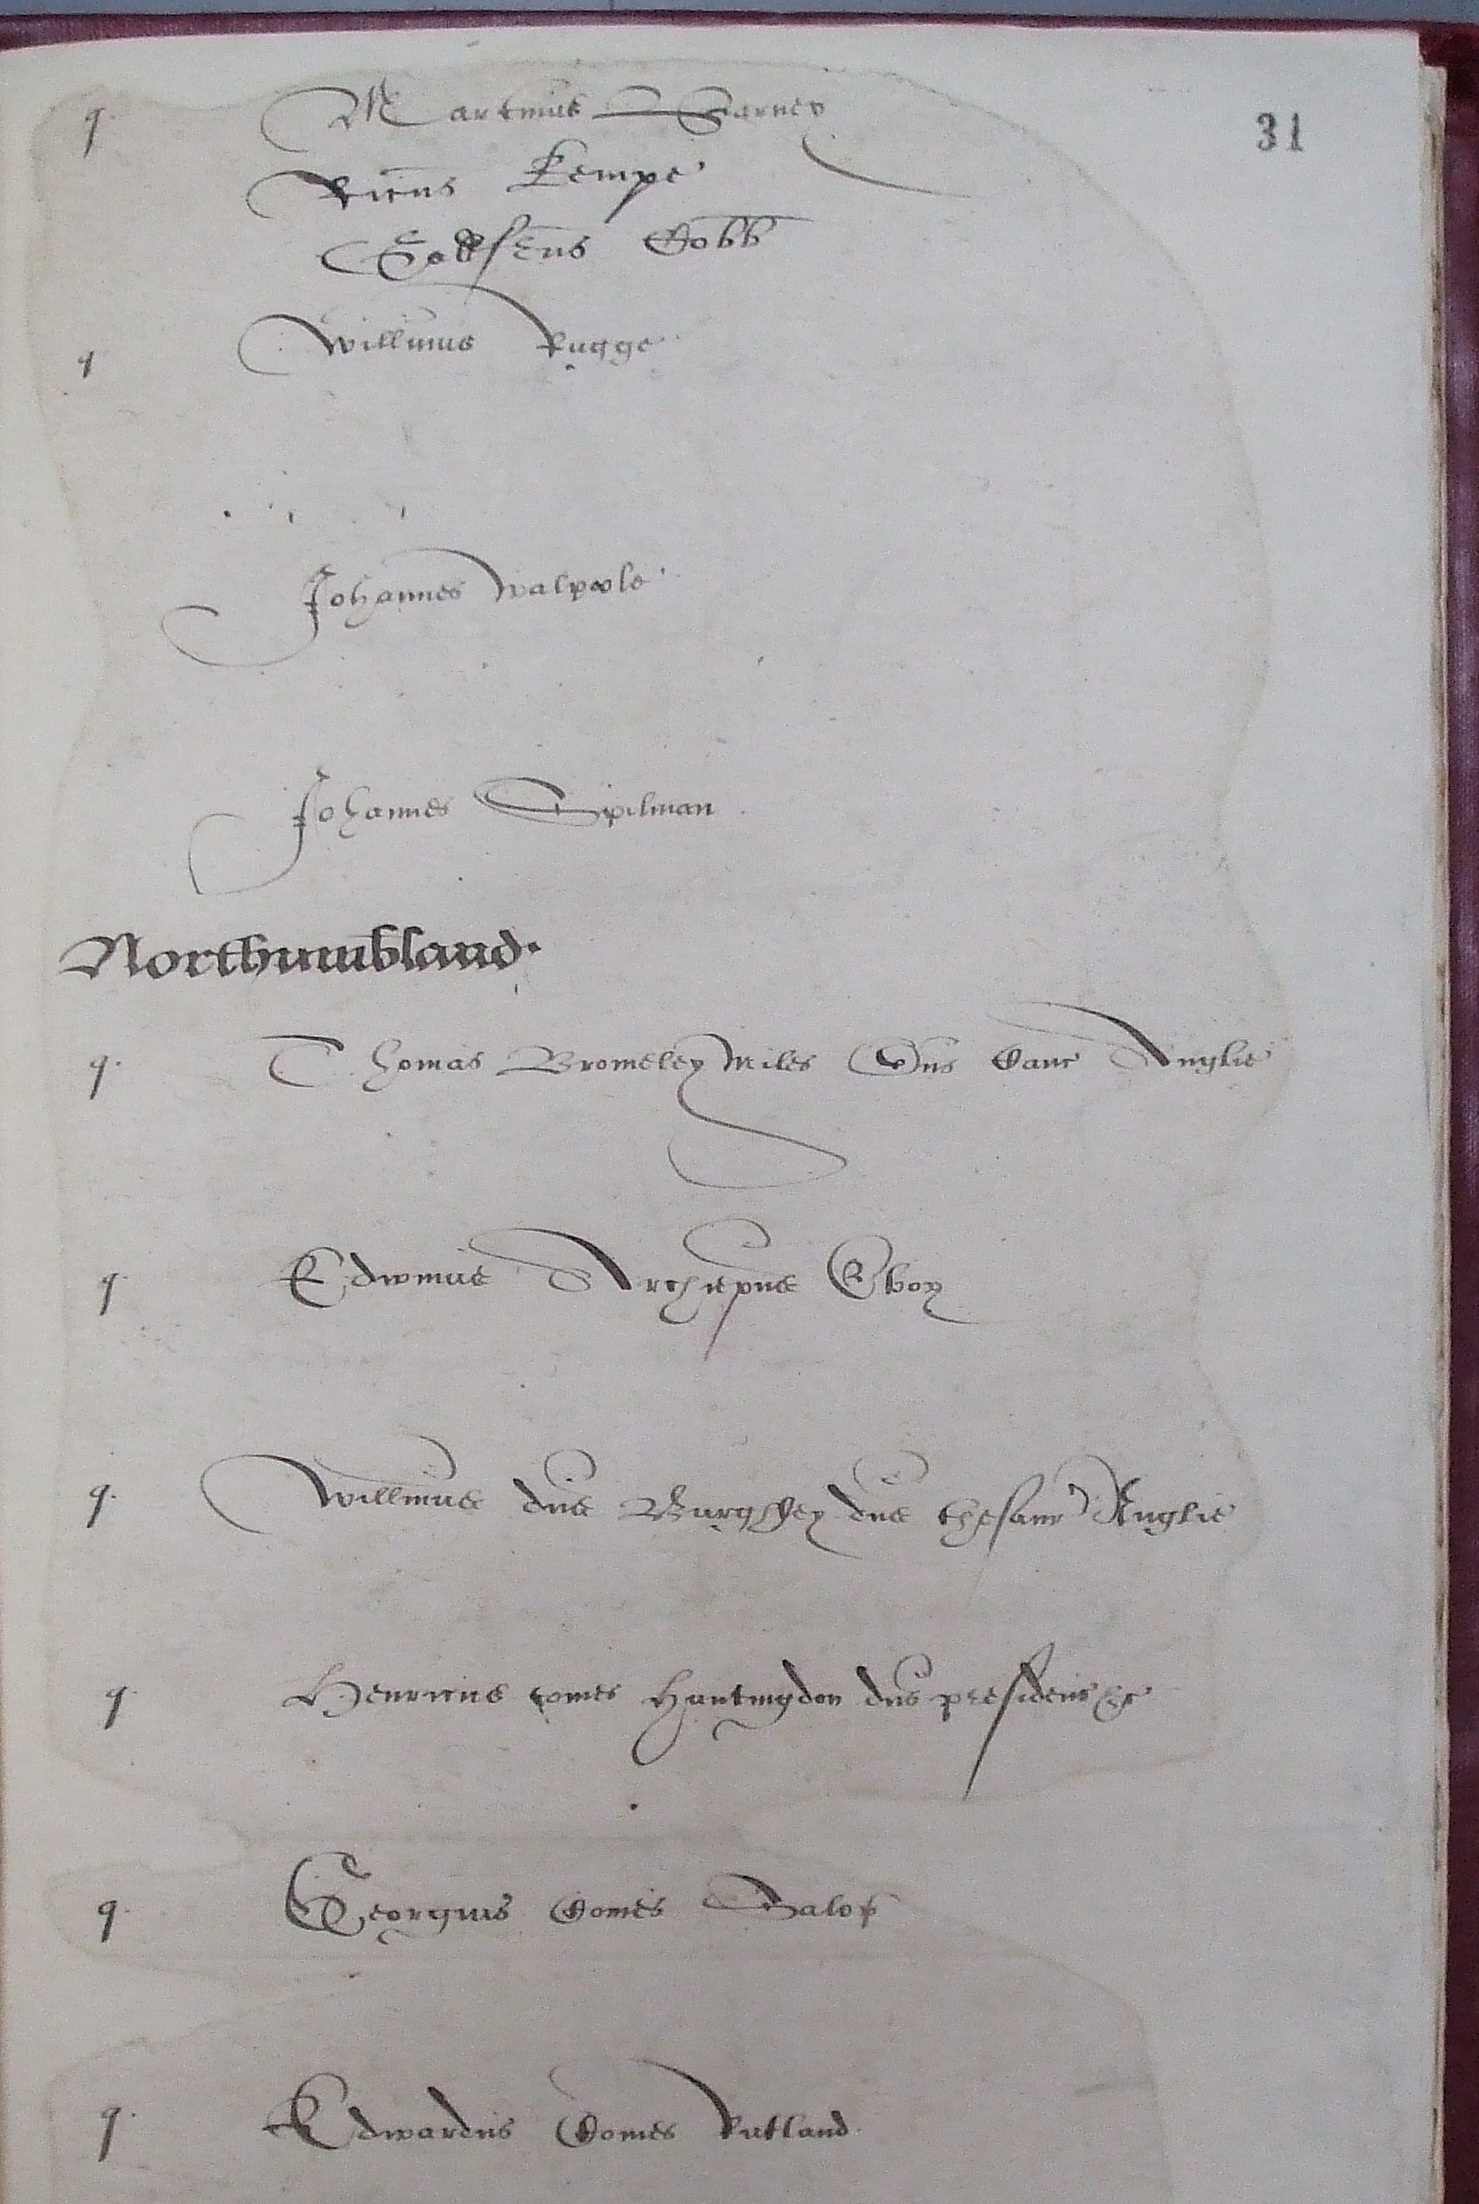 31
q. Martinus Barney
Ricus Kempe
Cobb
q Willmus Rugge
Johannes Walpoole
Johannes Spilman
Northumbland.
q. Thomas Bromeley Miles Dns Canc Anglie
q Edwinus Archiepus Ebor
q. Willmus dns Burghley dns thesaur Anglie
q. Henricus comes Huntingdon dns presidens &c
q. Georgius Comes Salop
q. Edwardus Comes Rutland